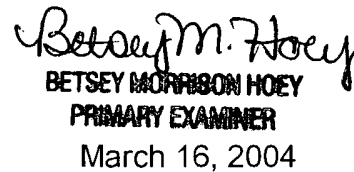 Betsey M. Hoey
BETSEY MORRISON HOEY
PRIMARY EXAMINER
March 16, 2004